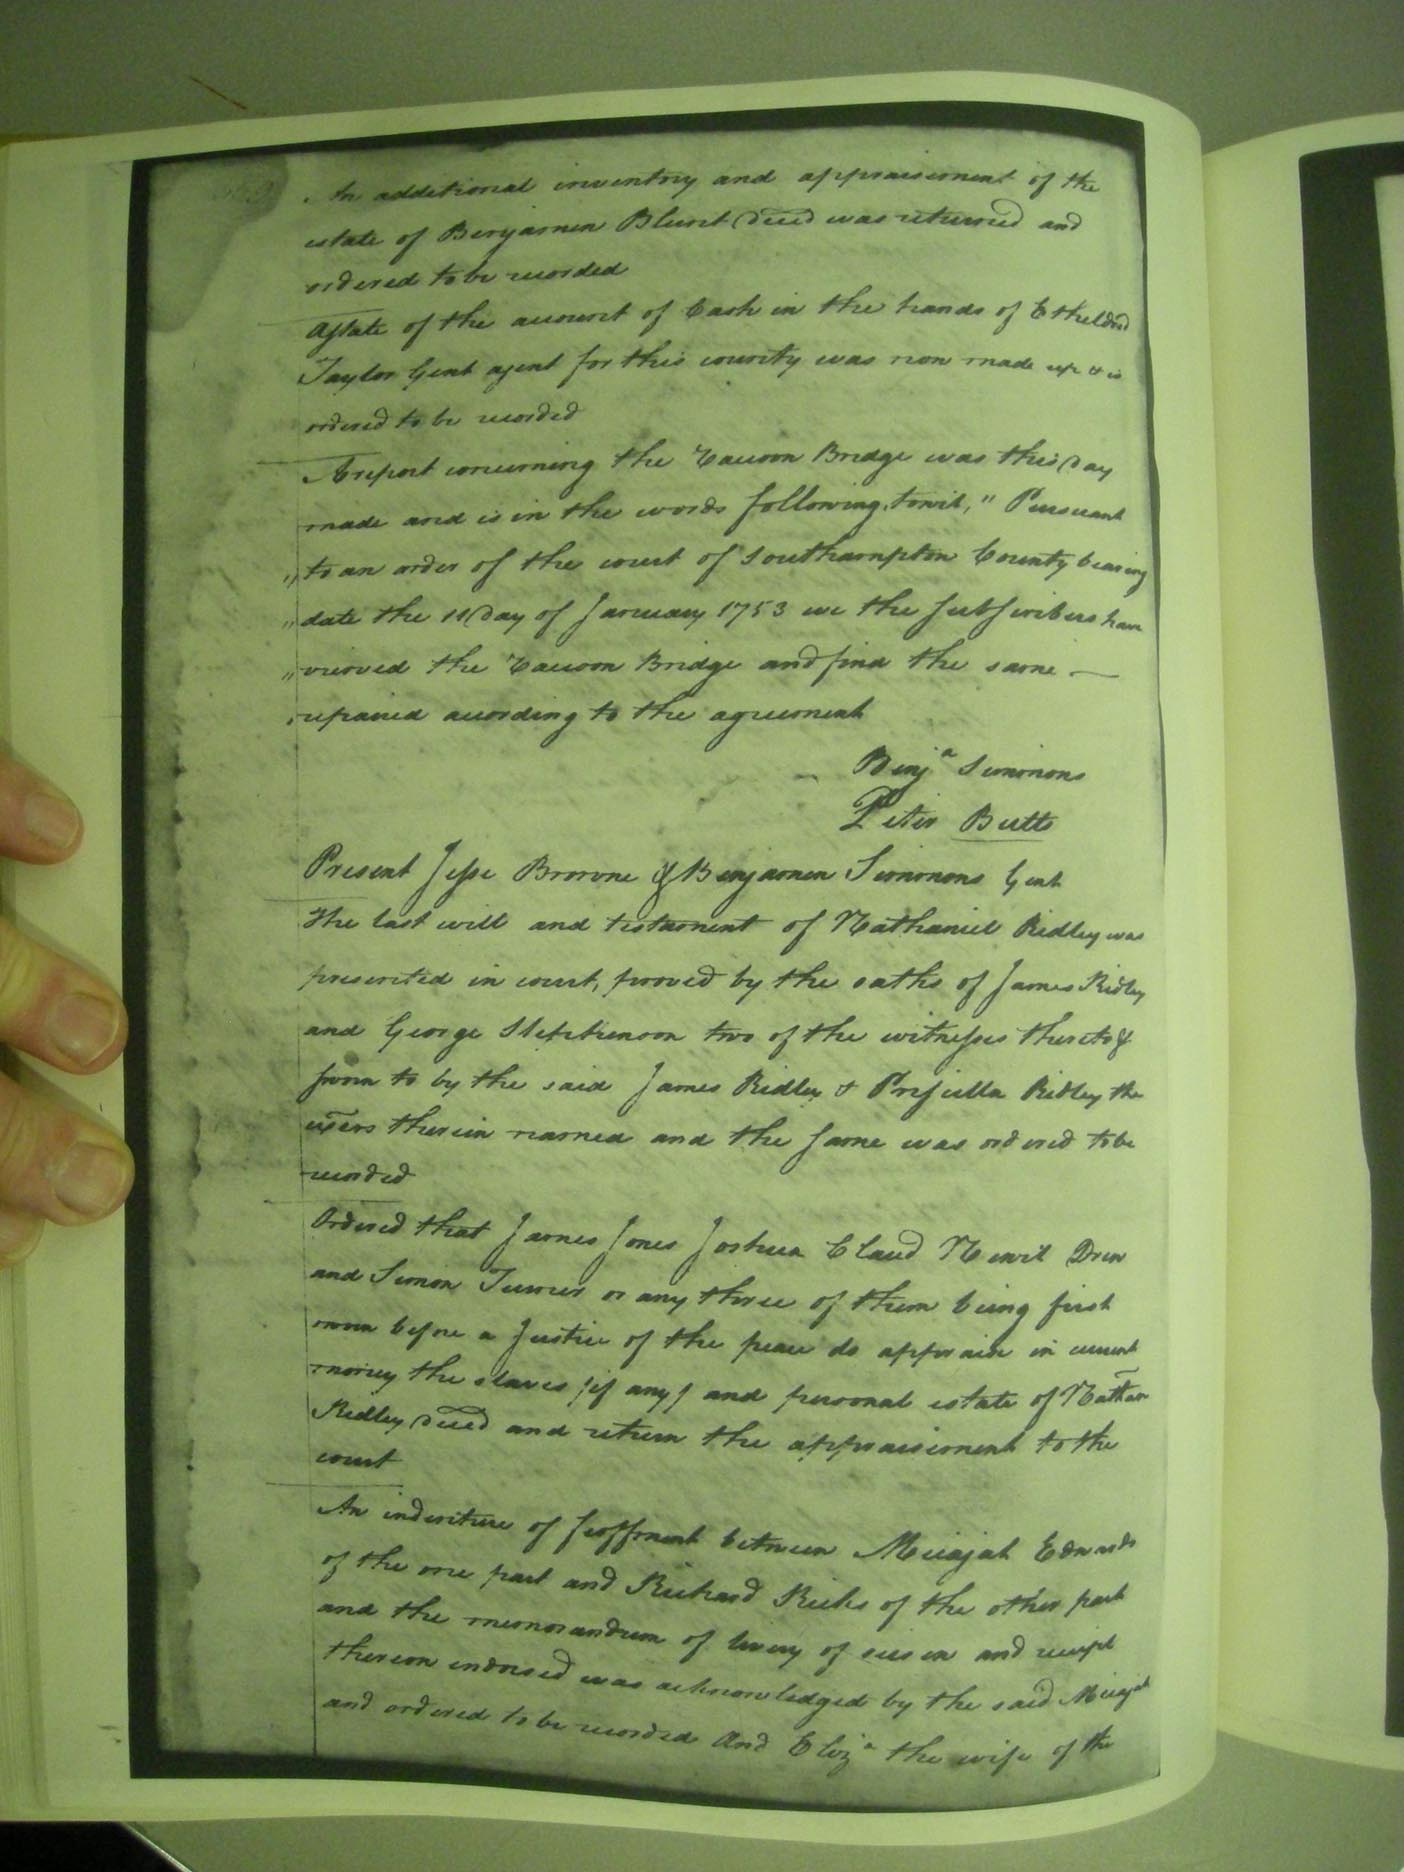 An additional inventory and appraisement of the
estate of Benjamin Blunt Deced was returned and
ordered to be recorded
A state of the account of Cash in the hands of Etheldred
Taylor Gent agent for this county was now made up & is
ordered to be recorded
A report concerning the Bridge was this Day
made and is in the words following, towit, " Pursuant
" to an order of the court of Southampton County bearing
" date the 11 Day of January 1753 we the subscribers have
" viewed the Bridge and find the same
" repaired according to the agreement
Benja Simmons
Peter Butts
Present Jesse Browne & Benjamin Simmons Gent
The last will and testament of Nathaniel Ridley was
presented in court, proved by the oaths of James Ridley
and George Stephenson two of the witnesses thereto &
sworn to by the said James Ridley & Priscilla Ridley the
exers therein named and the same was ordered to be
recorded
Ordered that James Jones Joshua Claud Newit Drew
and Simon Turner or any three of them being first
sworn before a Justice of the peace do appraise in current
money the slaves (if any) and personal estate of Nathan
Ridley Deced and return the appraisement to the
court
An indenture of feoffment between Micajah Edwards
of the one part and Richard Ricks of the other part
and the memorandum of livery of seisin and receipt
thereon indorsed was acknowledged by the said Micajah
and ordered to be recorded And Eliza the wife of the